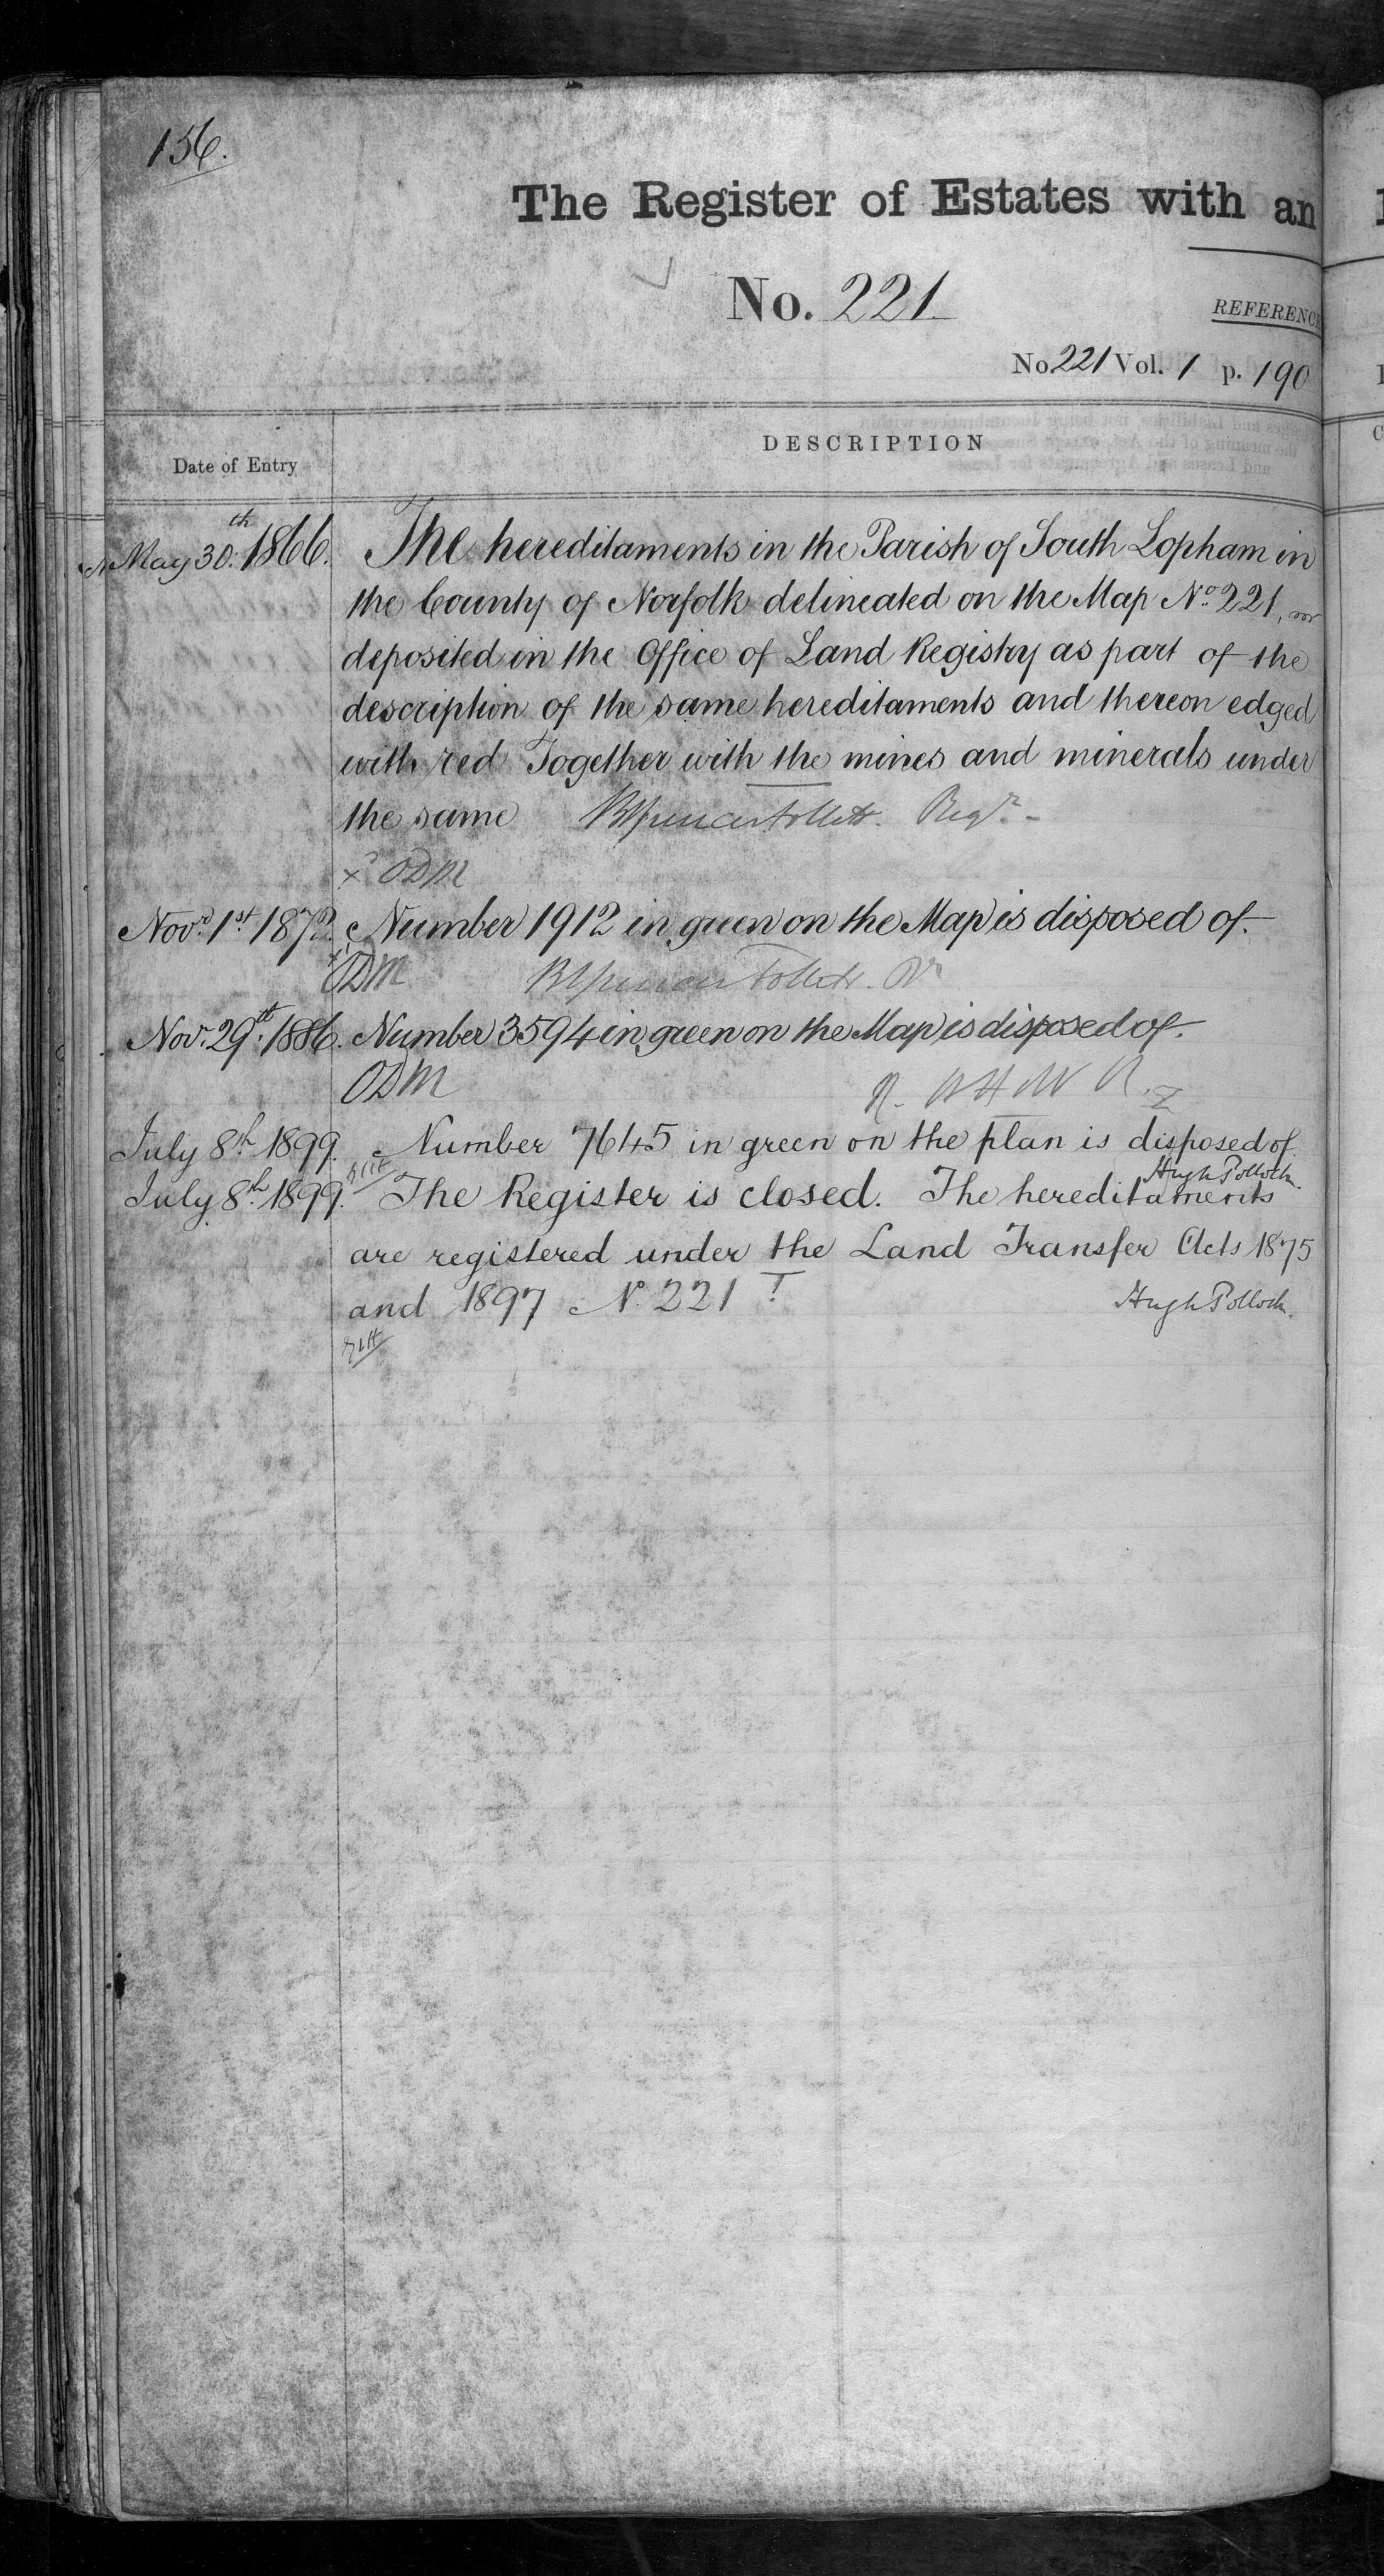 156.
The Register of Estates with an
No. 221.
REFERENC
No 221 Vol. 1 p. 190
Date of Entry
DESCRIPTION
May 30th. 1866. The hereditaments in the Parish of South Lopham in
the County of Norfolk delineated on the Map No. 221,
deposited in the Office of Land Registry as part of the
description of the same hereditaments and thereon edged
with red Together with the mines and minerals under
the same Regr.
ODM
Novr. 1st 1872. Number 1912 in green on the Map is disposed of.
ODM
Novr. 29th. 1886. Number 3594 in green on the Map is disposed of.
ODM
July 8th 1899. Number 7645 in green on the plan is disposed of.
Hugh Pollock.
July 8th 1899. The Register is closed. The hereditaments
are registered under the Land Transfer Acts 1875
and 1897 No. 221 T
Hugh Pollock.